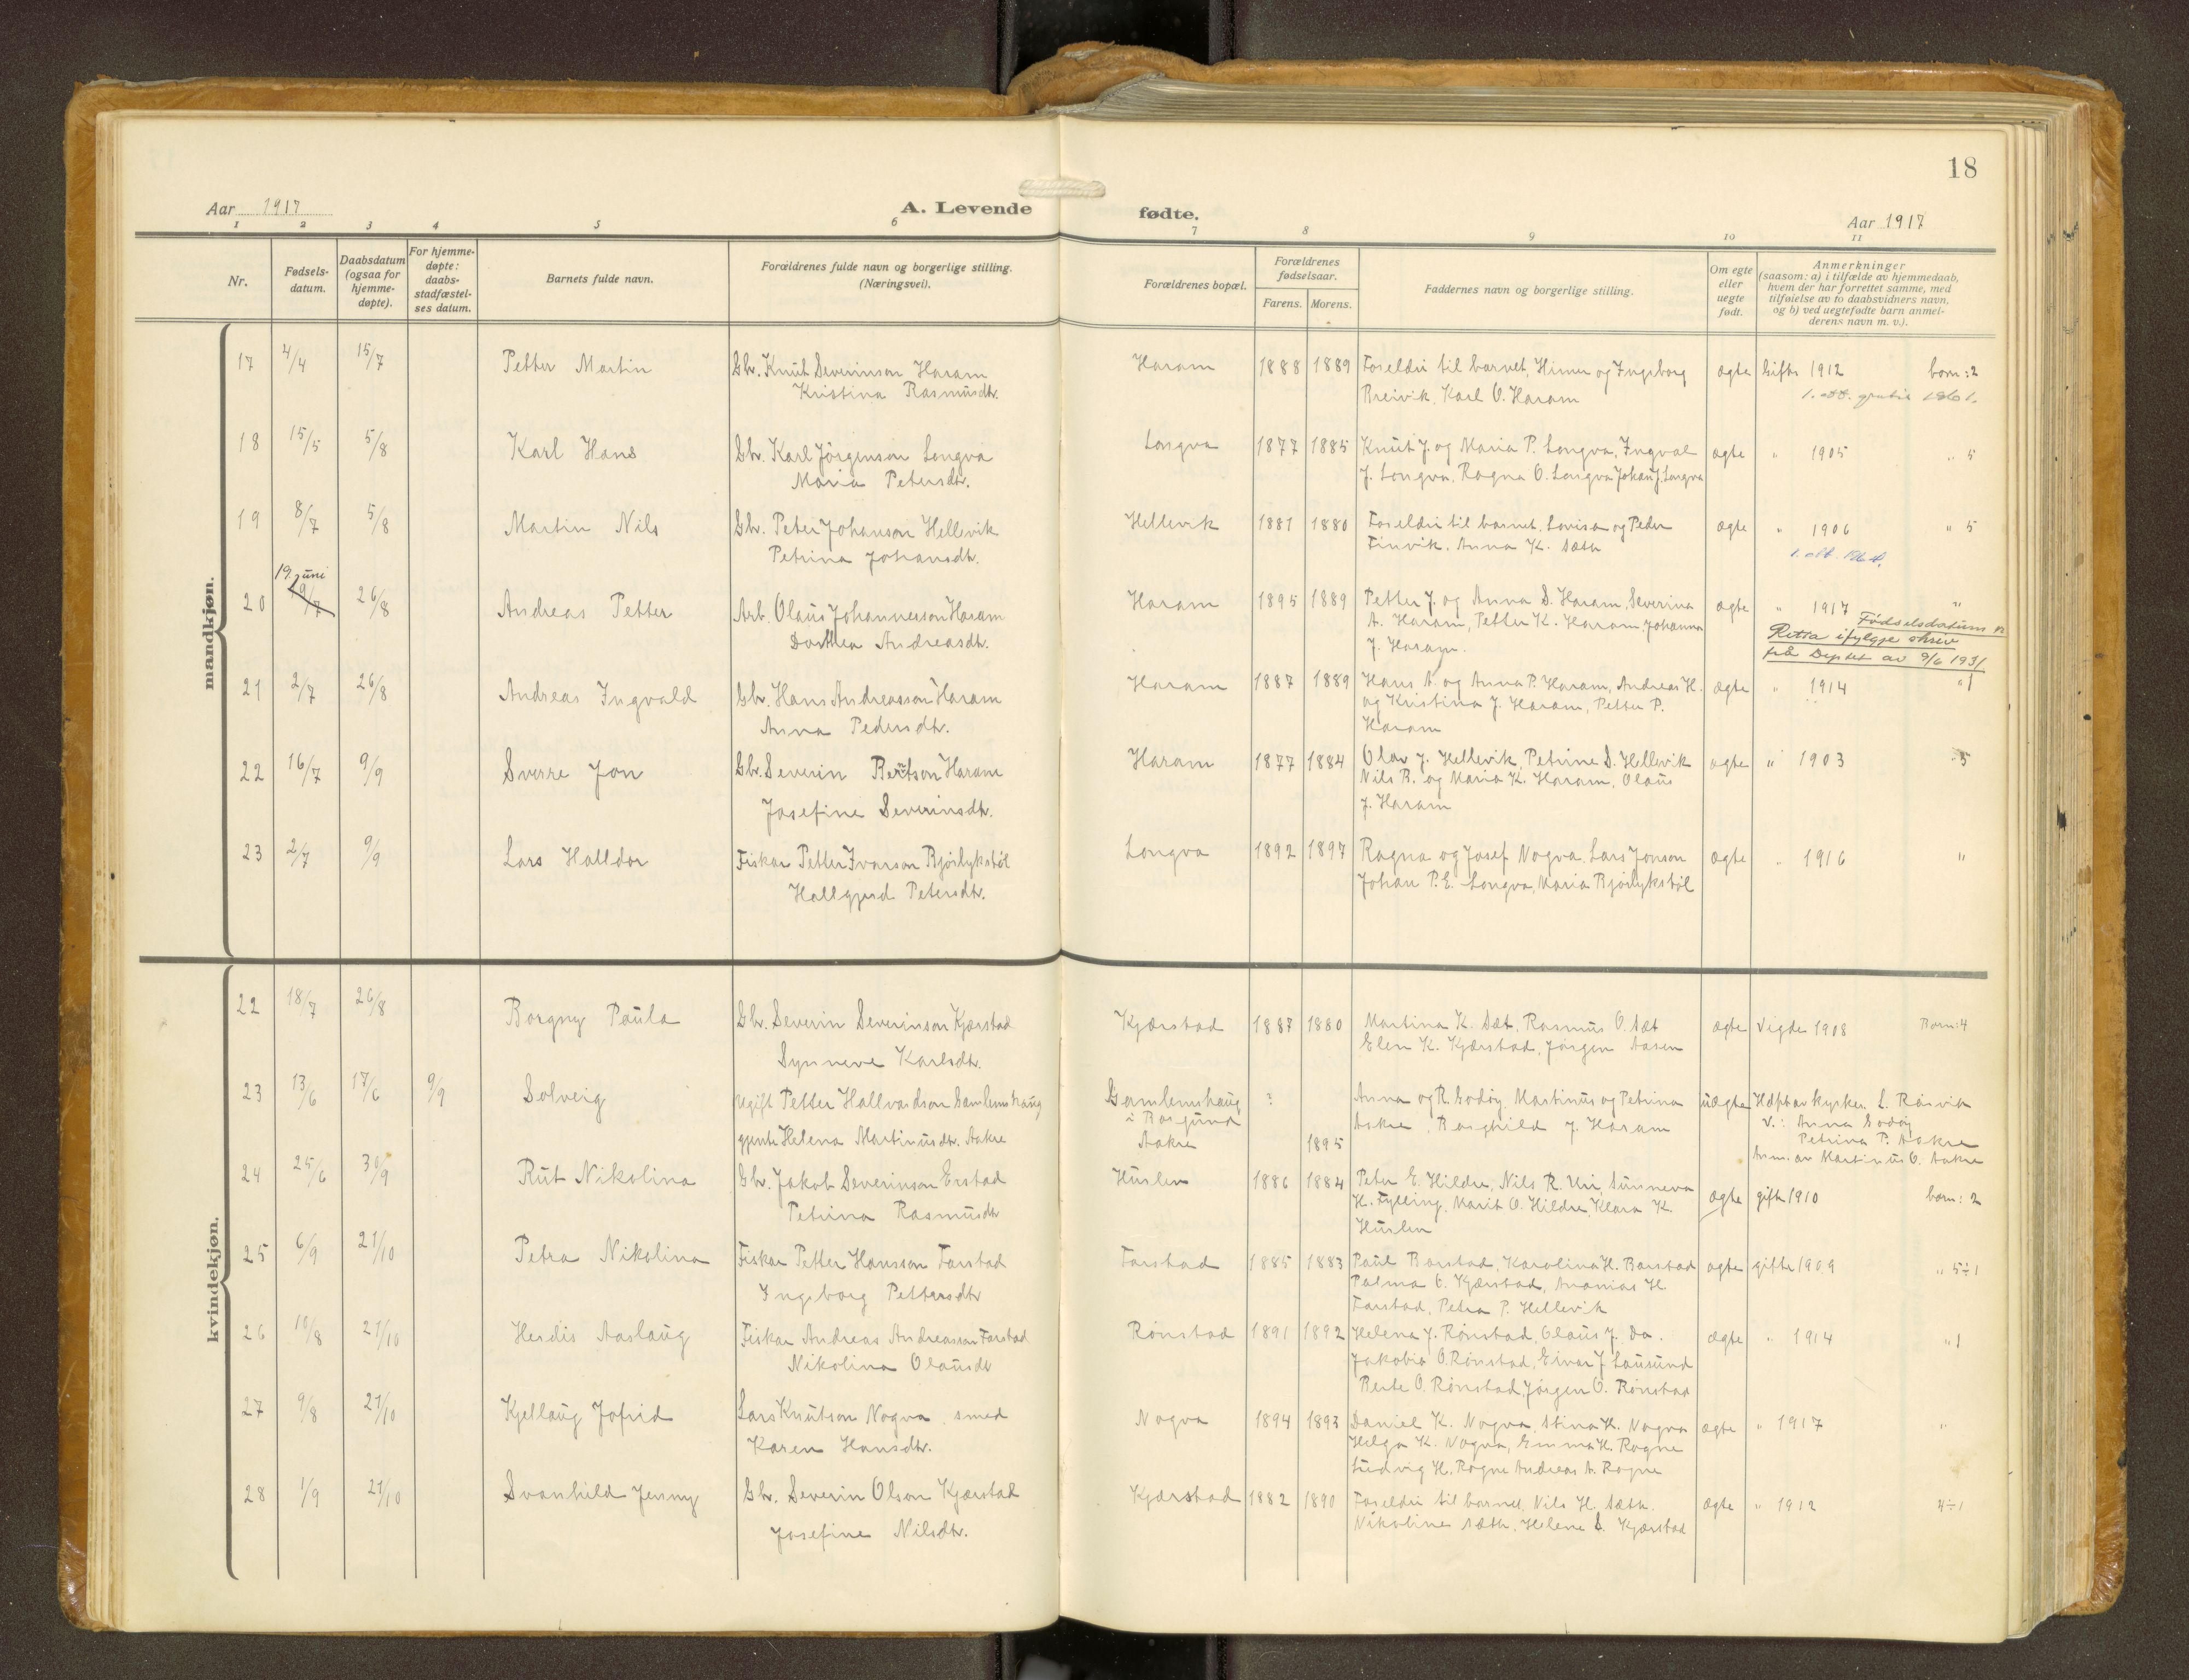 18
Aar 1917
A. Levende fødte.
Aar 1917
1 2 3 4 5 6 7 8 9 10 11
Nr.
Fødsels-
datum.
Daabsdatum
(ogsaa for
hjemme-
døpte).
For hjemme-
døpte:
daabs-
stadfæstel-
ses datum.
Barnets fulde navn.
Forældrenes fulde navn og borgerlige stilling.
(Næringsvei).
Forældrenes bopæl.
Forældrenes
fødselsaar.
Farens. Morens.
Faddernes navn og borgerlige stilling.
Om egte
eller
uegte
født.
Anmerkninger
(saasom: a) i tilfælde av hjemmedaab,
hvem der har forrettet samme, med
tilføielse av to daabsvidners navn,
og b) ved uegtefødte barn anmel-
derens navn m. v.).
mandkjøn.
17 4/4 15/7 Petter Martin Gbr. Knut Severinson Haram Haram 1888 1889 Foreldri til barnet, Himer og Ingeborg ægte Gifte 1912 born: 2
Kristina Rasmusdtr. Breivik, Karl O. Haram
18 15/5 5/8 Karl Hans Gbr. Karl Jörgenson Longva Longva 1877 1885 Knut J. og Maria P. Longva, Ingval ægte " 1905 " 5
Maria Petersdtr. J. Longva, Ragna O. Longva Johan J. Longva
19 8/7 5/8 Martin Nils Gbr. Peter Johanson Hellevik Hellevik 1881 1880 Foreldri til barnet, Lovisa og Peder ægte " 1906 " 5
Petrina Johansdtr. Finvik, Anna K. Sætr
19. juni
20 19/7 26/8 Andreas Petter Arb. Olaus Johannesson Haram Haram 1895 1889 Petter J. og Anna S. Haram, Severina ægte " 1917 "
Dorthea Andreasdtr. A. Haram, Petter K. Haram, Johanna Fødselsdatum
J. Haram. Retta ifylgje skriv
frå Deptet av 9/6 1931
21 2/7 26/8 Andreas Ingvald Gbr. Hans Andreasson Haram Haram 1887 1889 Hans A. og Anna P. Haram, Andreas H. ægte " 1914 " 1
Anna Pedersdtr. og Kristina J. Haram, Petter P.
Haram
22 16/7 9/9 Sverre Jon Gbr. Severin Bertson Haram Haram 1877 1884 Olav J. Hellevik, Petrine S. Hellevik ægte " 1903 " 5
Josefine Severinsdtr. Nils B. og Maria K. Haram, Olaus
J. Haram
23 2/7 9/9 Lars Halldor Fiskar Petter Ivarson Bjørlykstöl Longva 1892 1897 Ragna og Josef Nogva, Lars Jonson ægte " 1916 "
Hallgjerd Petersdtr. Johan P.E. Longva, Maria Bjørlykstöl
kvindekjøn.
22 18/7 26/8 Borgny Paula Gbr. Severin Severinson Kjærstad Kjærstad 1887 1880 Martina K. Sæt, Rasmus O. Sæt ægte Vigde 1908 Born: 4
Synneve Karlsdtr. Elen K. Kjærstad, Jörgen Aasen
23 13/6 17/6 9/9 Solveig ugift Petter Hallvardson Gamlemshaug Gamlemshaug ? Anna og R. Godöy, Martinus og Petrina uægte Hdöpt av kyrkes. L. Røsvik
i Borgund V.: Anna Godöy
gjente Helena Martinusdtr. Aakre Aakre 1895 Aakre, Borghild J. Haram Petrina P. Aakre
Anm. av Martinus O. Aakre
24 25/6 30/9 Rut Nikolina Gbr. Jakob Severinson Erstad Huslen 1886 1884 Peter E. Hildre, Nils R. Uri, Sunneva ægte gifte 1910 born: 2
Petrina Rasmusdtr H. Fylling, Marit O. Hildre, Klara K.
Huslen
25 6/9 21/10 Petra Nikolina Fiskar Petter Hansson Farstad Farstad 1885 1883 Paul Barstad, Karolina H. Barstad ægte gifte 1909 " 5÷1
Ingeborg Pettersdtr Palma G. Kjærstad, Ananias H
Farstad, Petra P. Hellevik
26 10/8 21/10 Herdis Aaslaug Fiskar Andreas Andreasson Farstad Rønstad 1891 1892 Helena J. Rønstad, Olaus J. Do. ægte " 1914 " 1
Nikolina Olausdtr Jakobia O. Rønstad, Einar J. Lausund
Berte O. Rønstad, Jørgen O. Rønstad
27 9/8 21/10 Kjellaug Jofrid Lars Knutson Nogva, smed Nogva 1894 1893 Daniel K. Nogva, Stina K. Nogva ægte " 1917 "
Karen Hansdtr. Helga K. Nogva, Emma H. Rogne
Ludvig H. Rogne Andreas A. Rogne
28 1/9 21/10 Svanhild Jenny Gbr. Severin Olson Kjærstad Kjærstad 1882 1890 Foreldri til barnet, Nils H. Sætr. ægte " 1912 4÷1
Josefine Nilsdtr. Nikoline Sætr, Helene S. Kjærstad